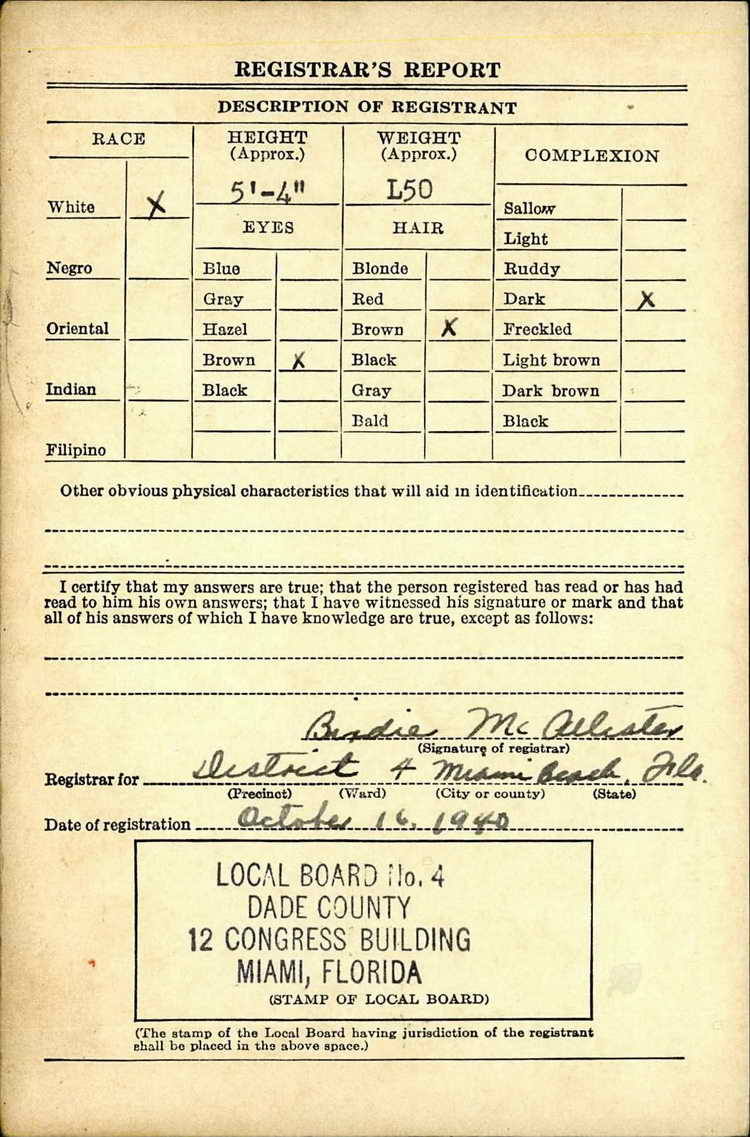 REGISTRAR'S REPORT
DESCRIPTION OF REGISTRANT
RACE
HEIGHT
(Approx.)
WEIGHT
(Approx.)
COMPLEXION
5'-4"
L50
White X
EYES
HAIR
Sallow
Light
Negro
Blue
Blonde
Ruddy
Gray
Red
Dark X
Oriental
Hazel
Brown X
Freckled
Brown X
Black
Light brown
Indian
Black
Gray
Dark brown
Bald
Black
Filipino
Other obvious physical characteristics that will aid in identification
I certify that my answers are true; that the person registered has read or has had
read to him his own answers; that I have witnessed his signature or mark and that
all of his answers of which I have knowledge are true, except as follows:
Birdie McAllister
(Signature of registrar)
Registrar for District 4 Miami Beach, Fla.
(Precinct) (Ward) (City or county) (State)
Date of registration October 16, 1940
LOCAL BOARD No. 4
DADE COUNTY
12 CONGRESS BUILDING
MIAMI, FLORIDA
(STAMP OF LOCAL BOARD)
(The stamp of the Local Board having jurisdiction of the registrant
shall be placed in the above space.)